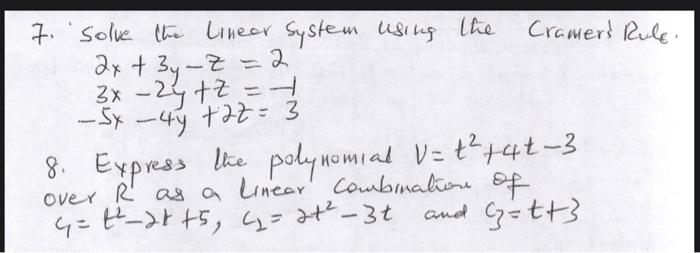 7. Solve the Linear System using the Cramer's Rule.
2x + 3y - z = 2
3x - 2y + z = -1
-5x - 4y + 2z = 3
8. Express the polynomial V = t² + 4t - 3
over R as a Linear Combination of
C₁ = t² - 2t + 5, C₂ = 2t² - 3t and C₃ = t + 3